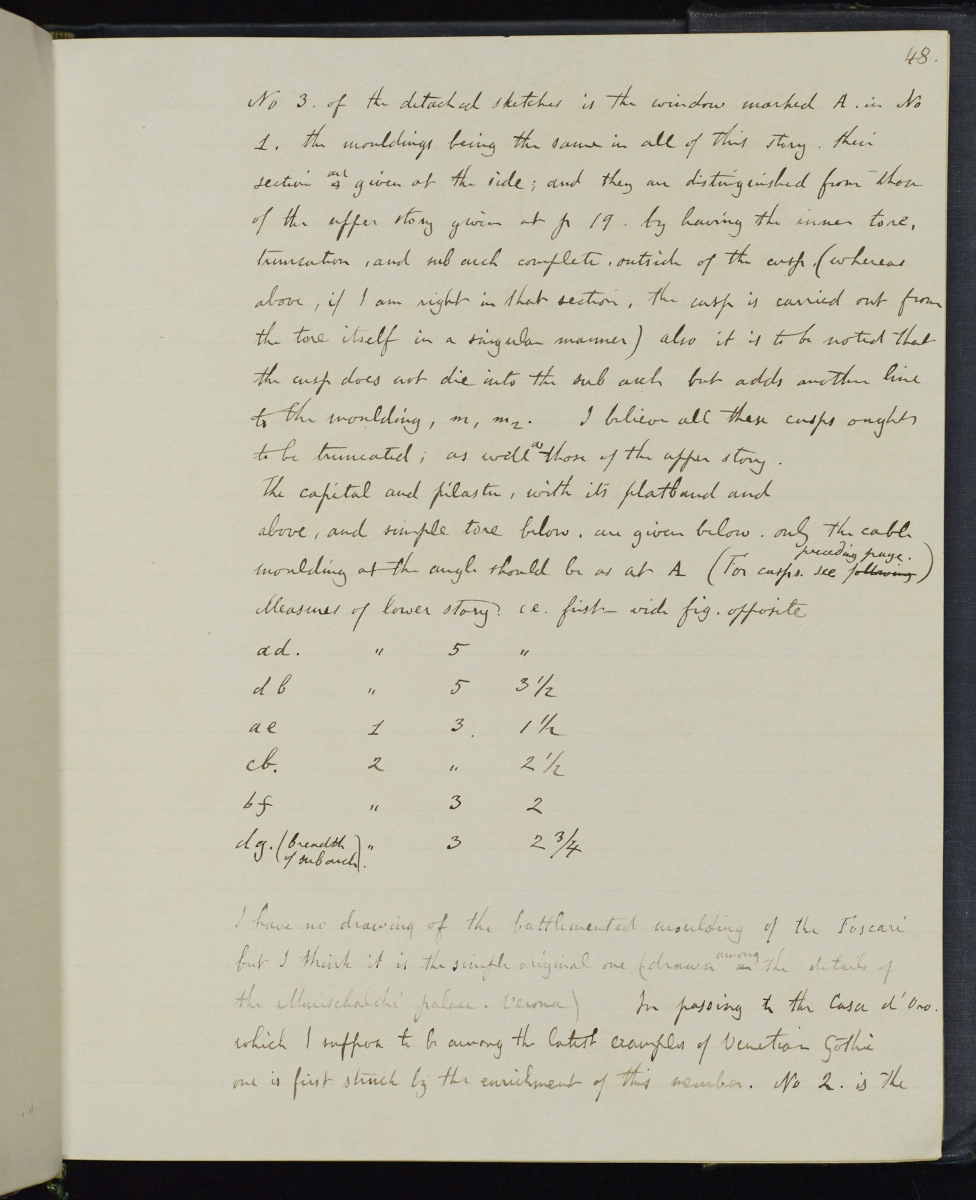 48.
No 3. of the detached sketches is the window marked A. in No
1. the mouldings being the same in all of this story. their
section are given at the side; and they are distinguished from those
of the upper story given at p 19. by having the inner tore,
truncation, and sub arch complete, outside of the cusp, (whereas
above, if I am right in that section, the cusp is carried out from
the tore itself in a singular manner) also it is to be noted that
the cusp does not die into the sub arch but adds another line
to the moulding, m, m2. I believe all these cusps ought
to be truncated; as well as those of the upper story.
The capital and pilaster, with its platband and
above, and simple tore below, are given below. only the cable
moulding at the angle should be as at A (For cusps. see following preceding page.)
Measures of lower story. i.e. first - vide fig. opposite
ad. " 5 "
db " 5 3 1/2
ae 1 3. 1 1/2
cb. 2 " 2 1/2
bf " 3 2
dg. (breadth of sub arch). " 3 2 3/4
I have no drawing of the battlemented moulding of the Foscari
but I think it is the simple original one (drawn among the details of
the palace. Verona) In passing to the Casa d'Oro.
which I suppose to be among the latest examples of Venetian Gothic
one is first struck by the enrichment of this member. No 2. is the